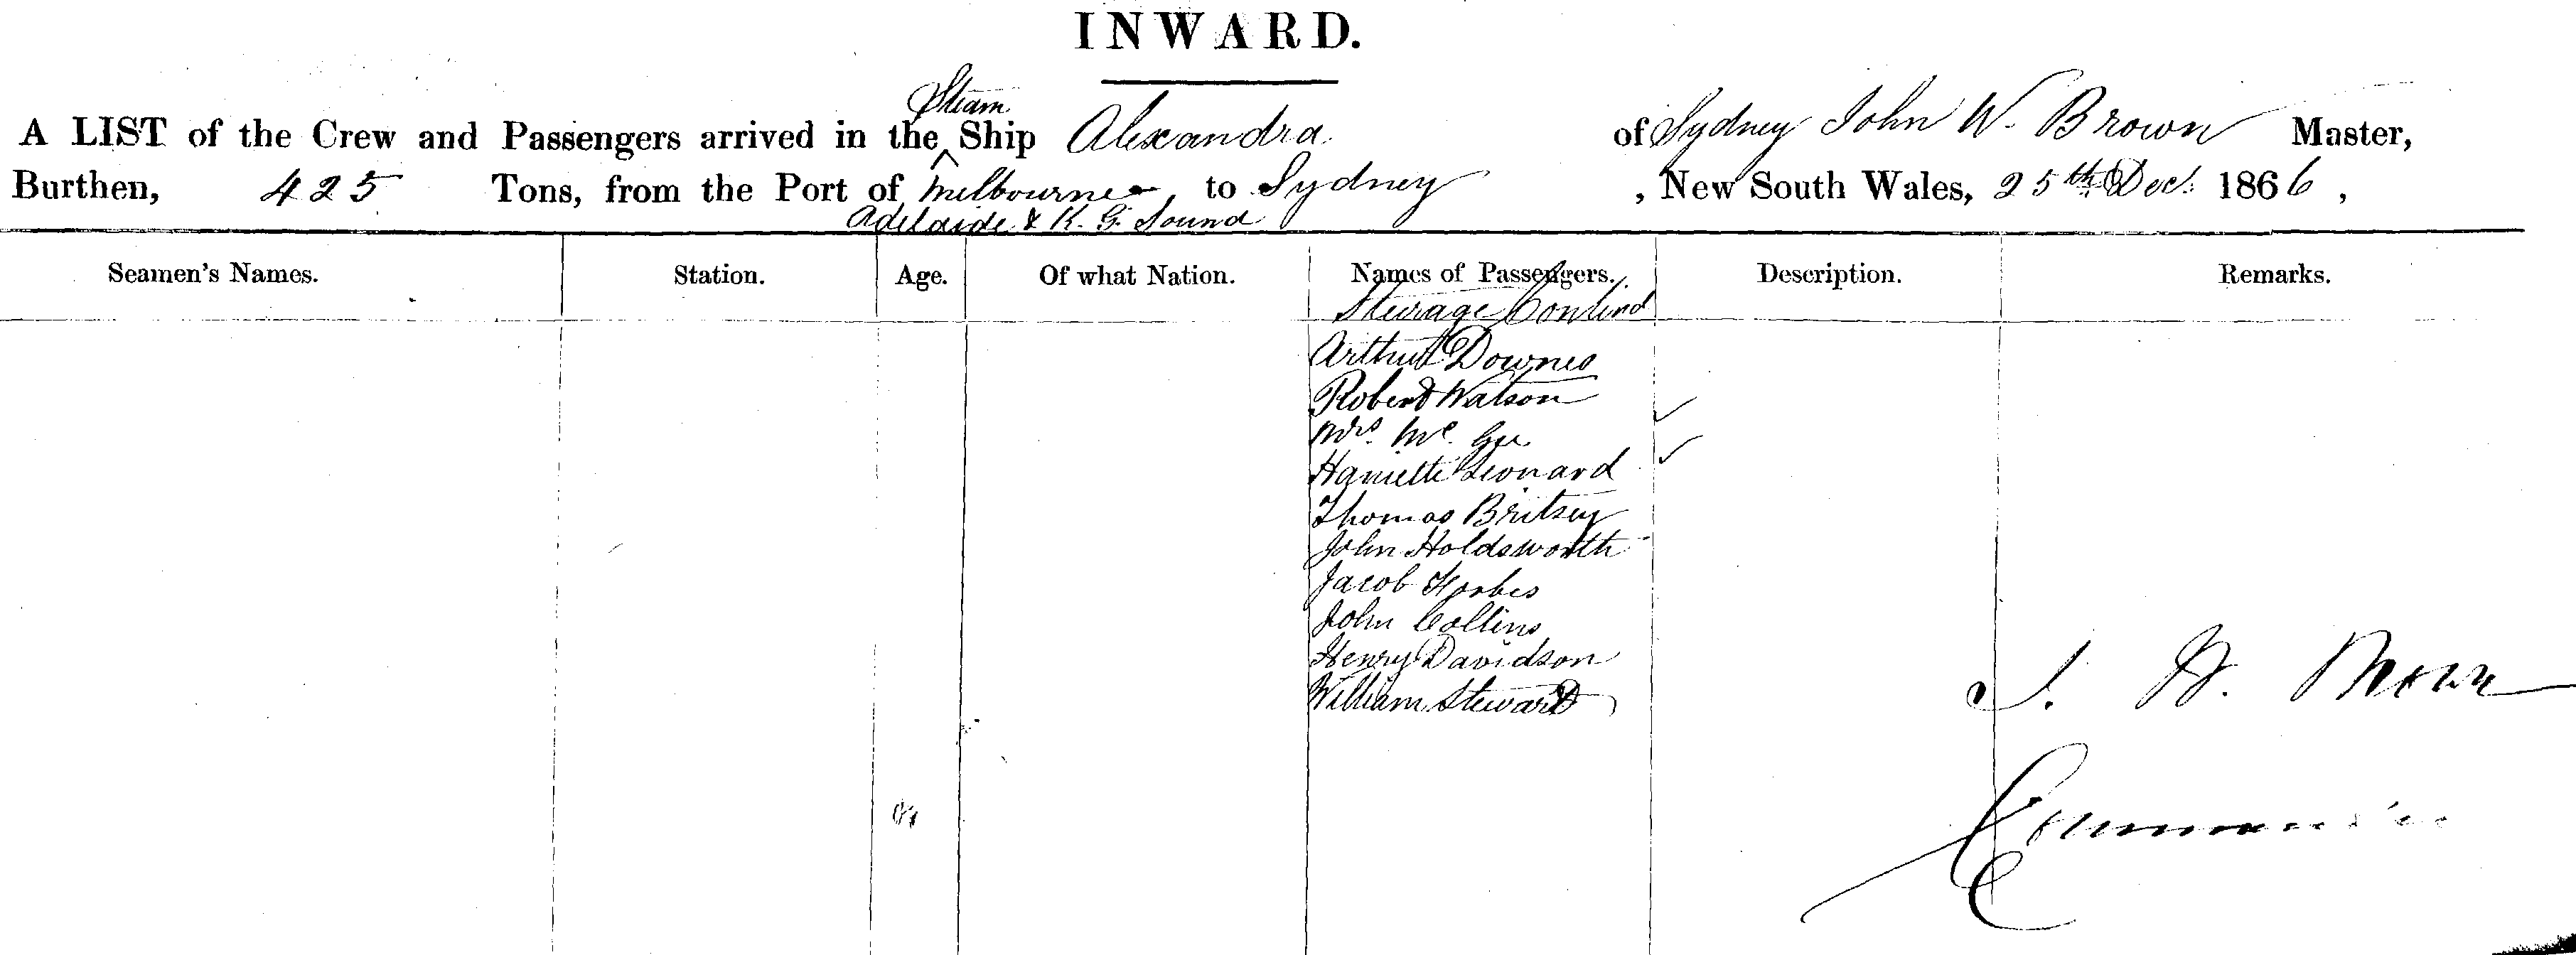 INWARD.
Steam
A LIST of the Crew and Passengers arrived in the ^ Ship Alexandra of Sydney John W. Brown Master,
Burthen, 425 Tons, from the Port of Melbourne, to Sydney, New South Wales, 25th Dec. 1866,
Adelaide & K. G. Sound
Seamen's Names. Station. Age. Of what Nation. Names of Passengers. Description. Remarks.
Steerage Contind
Arthur Downes
Robert Watson
Mrs. Mc. Gee
Harriette Leonard
Thomas Britsey
John Holdsworth
Jacob Forbes
John Collins
Henry Davidson
William Steward
J. W. Brown
Commander